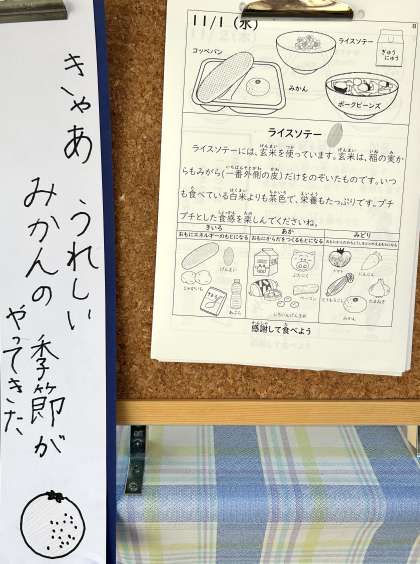 きゃあ うれしい
みかんの 季節が
やってきた
11/1（水）
コッペパン
ライスソテー
ぎゅうにゅう
みかん
ポークビーンズ
ライスソテー
ライスソテーには、玄米を使っています。玄米は、稲の実か
らもみがら（一番外側の皮）だけをのぞいたものです。いつ
も食べている白米よりも茶色で、栄養もたっぷりです。プチ
プチとした食感を楽しんでくださいね。
きいろ
おもにエネルギーのもとになる
あか
おもにからだをつくるもとになる
みどり
げんまい
じゃがいも
ぶたにく
ベーコン
トマト
にんじん
とうもろこし
たまねぎ
みかん
感謝して食べよう